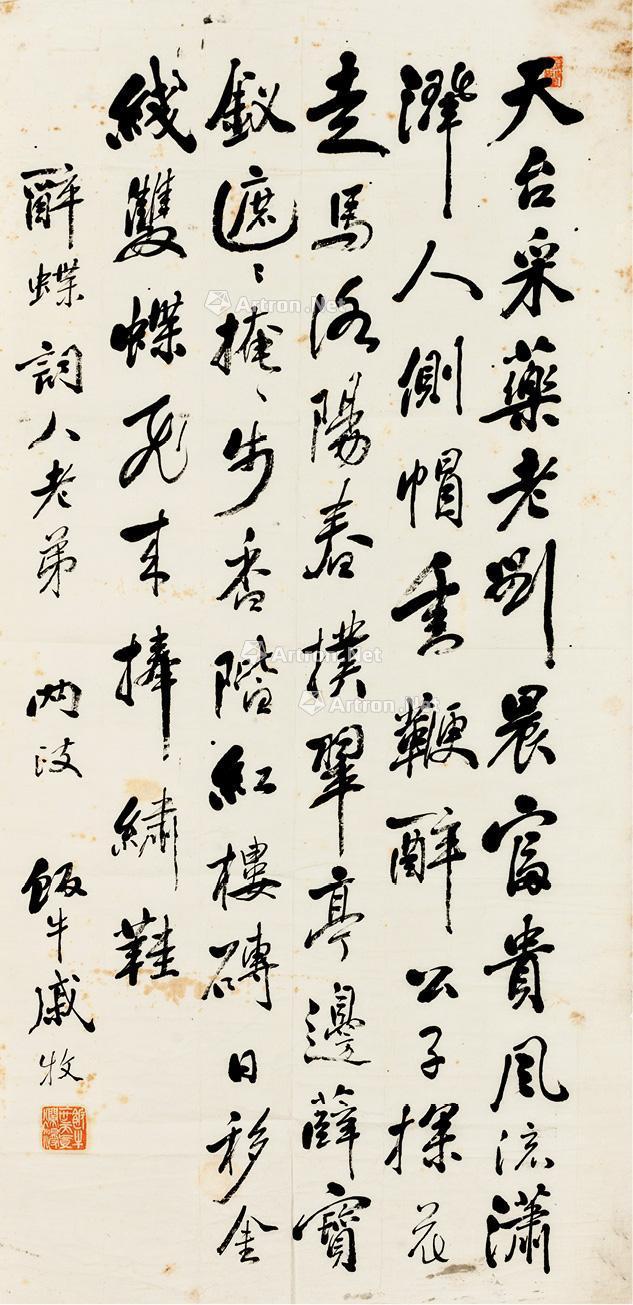 天台采藥老劉晨富貴風流瀟
灑人側帽垂鞭醉公子探花
走馬洛陽春撲翠亭邊薛寶
釵遮〻掩〻步香階紅樓磚日移金
綫雙蝶飛来捧繡鞋
醉蝶詞人老弟 兩政 飯牛戚牧
Artron.Net
Artron.Net
Artron.Net
Artron.Net